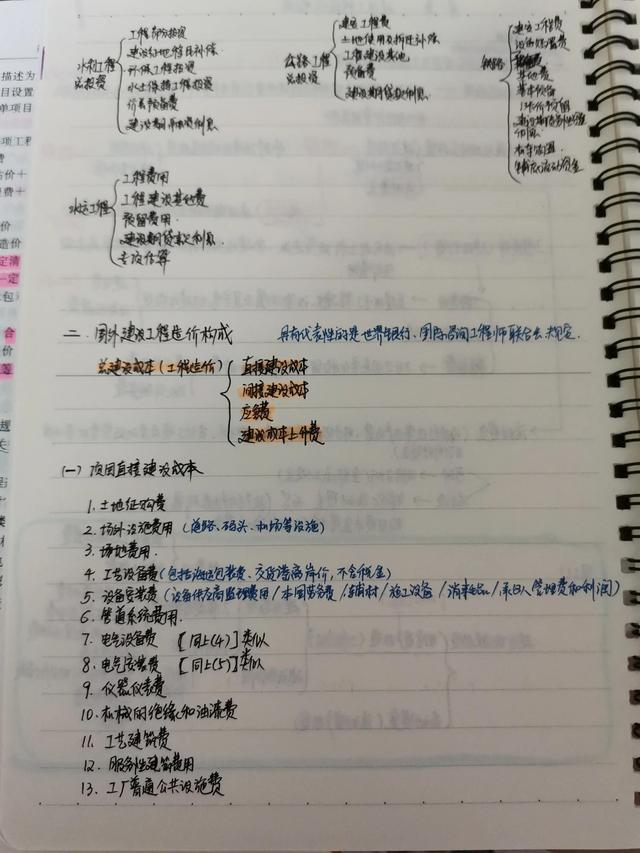 水利工程
总投资
工程部分投资
建设征地移民补偿
环保工程投资
水土保持工程投资
价差预备费
建设期融资利息
公路工程
总投资
建安工程费
土地使用及拆迁补偿
工程建设其他
预备费
建设期贷款利息
铁路
建安工程费
设备购置费
其他费
基本预备
利息
机车购置
铺底流动资金
水运工程
工程费用
工程建设其他费
预留费用
建设期贷款利息
专项估算
二、国外建设工程造价构成
具有代表性的是世界银行、国际咨询工程师联合会规定.
总建设成本(工程造价)
直接建设成本
间接建设成本
应急费
建设成本上升费
(一) 项目直接建设成本
1. 土地征购费
2. 场外设施费用 (道路、码头、机场等设施)
3. 场地费用.
4. 工艺设备费(包括海运包装费、交货港离岸价,不含税金)
5. 设备安装费(设备供应商监理费用/本国劳务费/辅材/施工设备/消耗品/承包人管理费和利润)
6. 管道系统费用.
7. 电气设备费 【同上(4)】类似
8. 电气安装费 【同上(5)】类似
9. 仪器仪表费
10. 机械的绝缘和油漆费
11. 工艺建筑费
12. 服务性建筑费用
13. 工厂普通公共设施费
描述为
目设置
单项目
造价
定清
一定
包
合
等